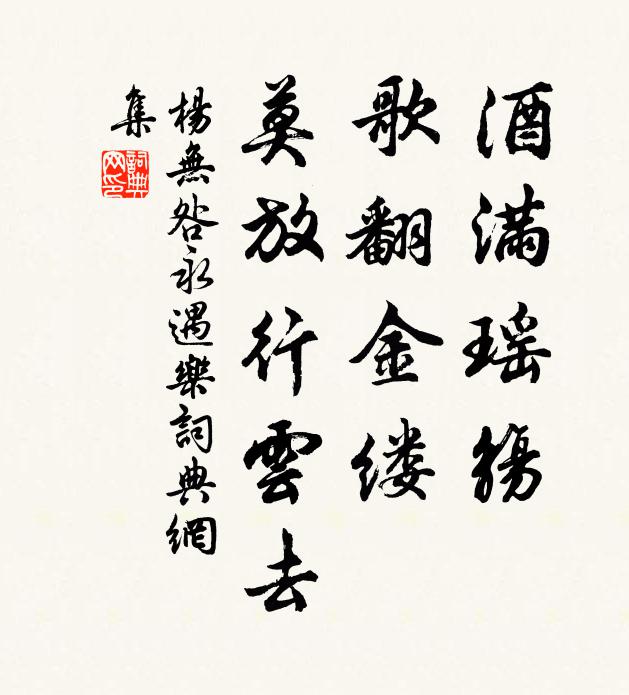 酒滿瑶觴
歌翻金缕
莫放行雲去
楊無咎永遇樂詞典網
集
詞典网印